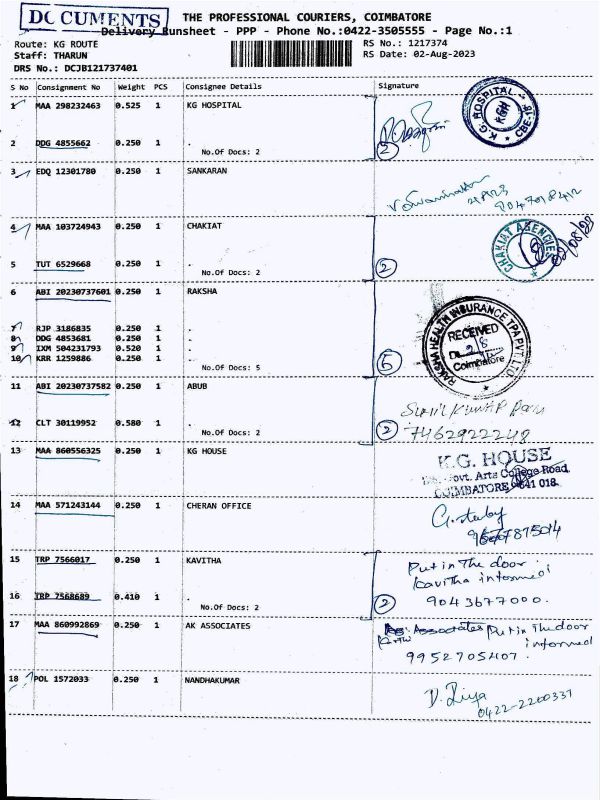 DOCUMENTS
THE PROFESSIONAL COURIERS, COIMBATORE
Delivery Runsheet - PPP - Phone No.:0422-3505555 - Page No.:1
Route: KG ROUTE
RS No.: 1217374
Staff: THARUN
RS Date: 02-Aug-2023
DRS No.: DCJB121737401
S No Consignment No Weight PCS Consignee Details Signature
1 MAA 298232463 0.525 1 KG HOSPITAL
K.G. HOSPITAL CBE-18
2 DDG 4855662 0.250 1 .
No.Of Docs: 2
2
3 EDQ 12301780 0.250 1 SANKARAN
4 MAA 103724943 0.250 1 CHAKIAT
CHAKIAT AGENCIES
02/08/23
5 TUT 6529668 0.250 1 .
No.Of Docs: 2
2
6 ABI 20230737601 0.250 1 RAKSHA
RAKSHA HEALTH INSURANCE TPA PVT LTD
RECEIVED
Coimbatore
7 RJP 3186835 0.250 1 .
8 DDG 4853681 0.250 1 .
9 IXM 504231793 0.520 1 .
10 KRR 1259886 0.250 1 .
No.Of Docs: 5
5
11 ABI 20230737582 0.250 1 ABUB
Sunil Kumar
12 CLT 30119952 0.580 1 .
No.Of Docs: 2
2
7462922248
13 MAA 860556325 0.250 1 KG HOUSE
K.G. HOUSE
Govt. Arts College Road
COIMBATORE - 641 018.
14 MAA 571243144 0.250 1 CHERAN OFFICE
15 TRP 7566017 0.250 1 KAVITHA
Put in The door
Kavitha informed
16 TRP 7568689 0.410 1 .
No.Of Docs: 2
2
9043677000.
17 MAA 860992869 0.250 1 AK ASSOCIATES
Put in The door
informed
9952705407.
18 POL 1572033 0.250 1 NANDHAKUMAR
D. Riya
0422-2200331